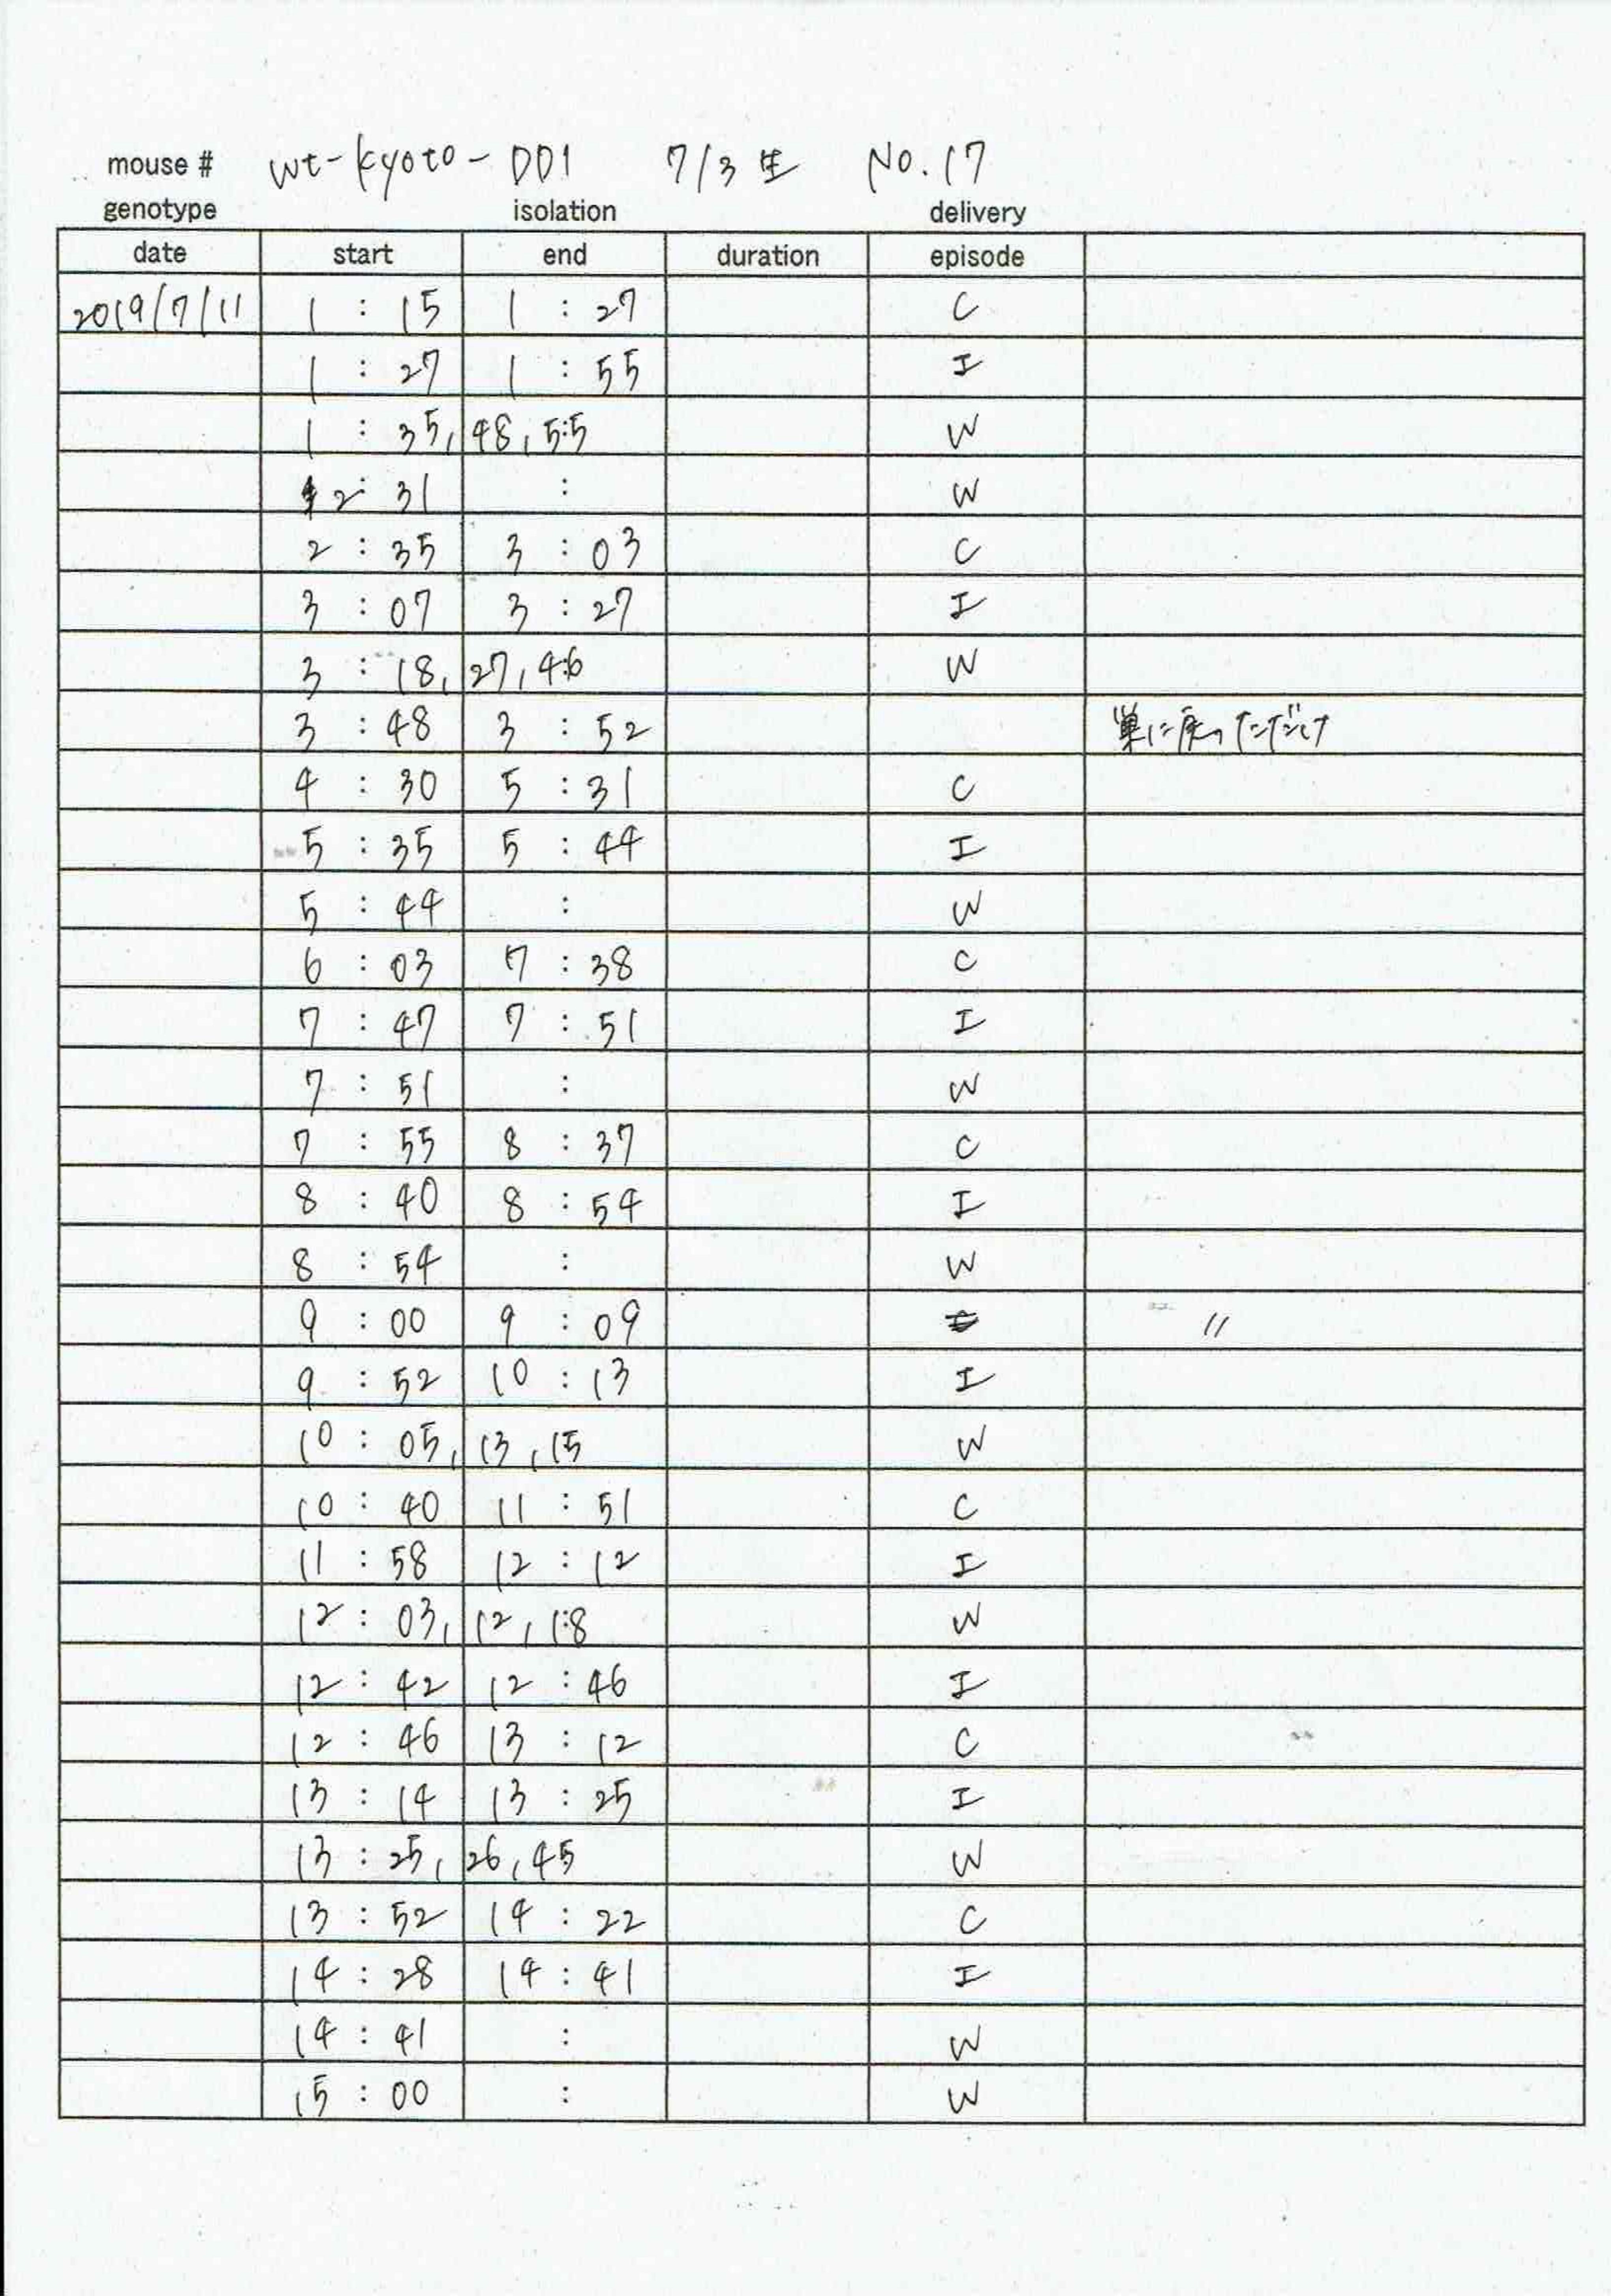 mouse # wt-kyoto-001 7/3生 No.17
genotype isolation delivery
date start end duration episode
2019/7/11 1 : 15 1 : 27 C
1 : 27 1 : 55 I
1 : 35, 48, 55 W
2 : 31 : W
2 : 35 3 : 03 C
3 : 07 3 : 27 I
3 : 18, 27, 46 W
3 : 48 3 : 52 巣に戻っただけ
4 : 30 5 : 31 C
5 : 35 5 : 44 I
5 : 44 : W
6 : 03 7 : 38 C
7 : 47 7 : 51 I
7 : 51 : W
7 : 55 8 : 37 C
8 : 40 8 : 54 I
8 : 54 : W
9 : 00 9 : 09 〃
9 : 52 10 : 13 I
10 : 05, 13, 15 W
10 : 40 11 : 51 C
11 : 58 12 : 12 I
12 : 03, 12, 18 W
12 : 42 12 : 46 I
12 : 46 13 : 12 C
13 : 14 13 : 25 I
13 : 25, 26, 45 W
13 : 52 14 : 22 C
14 : 28 14 : 41 I
14 : 41 : W
15 : 00 : W